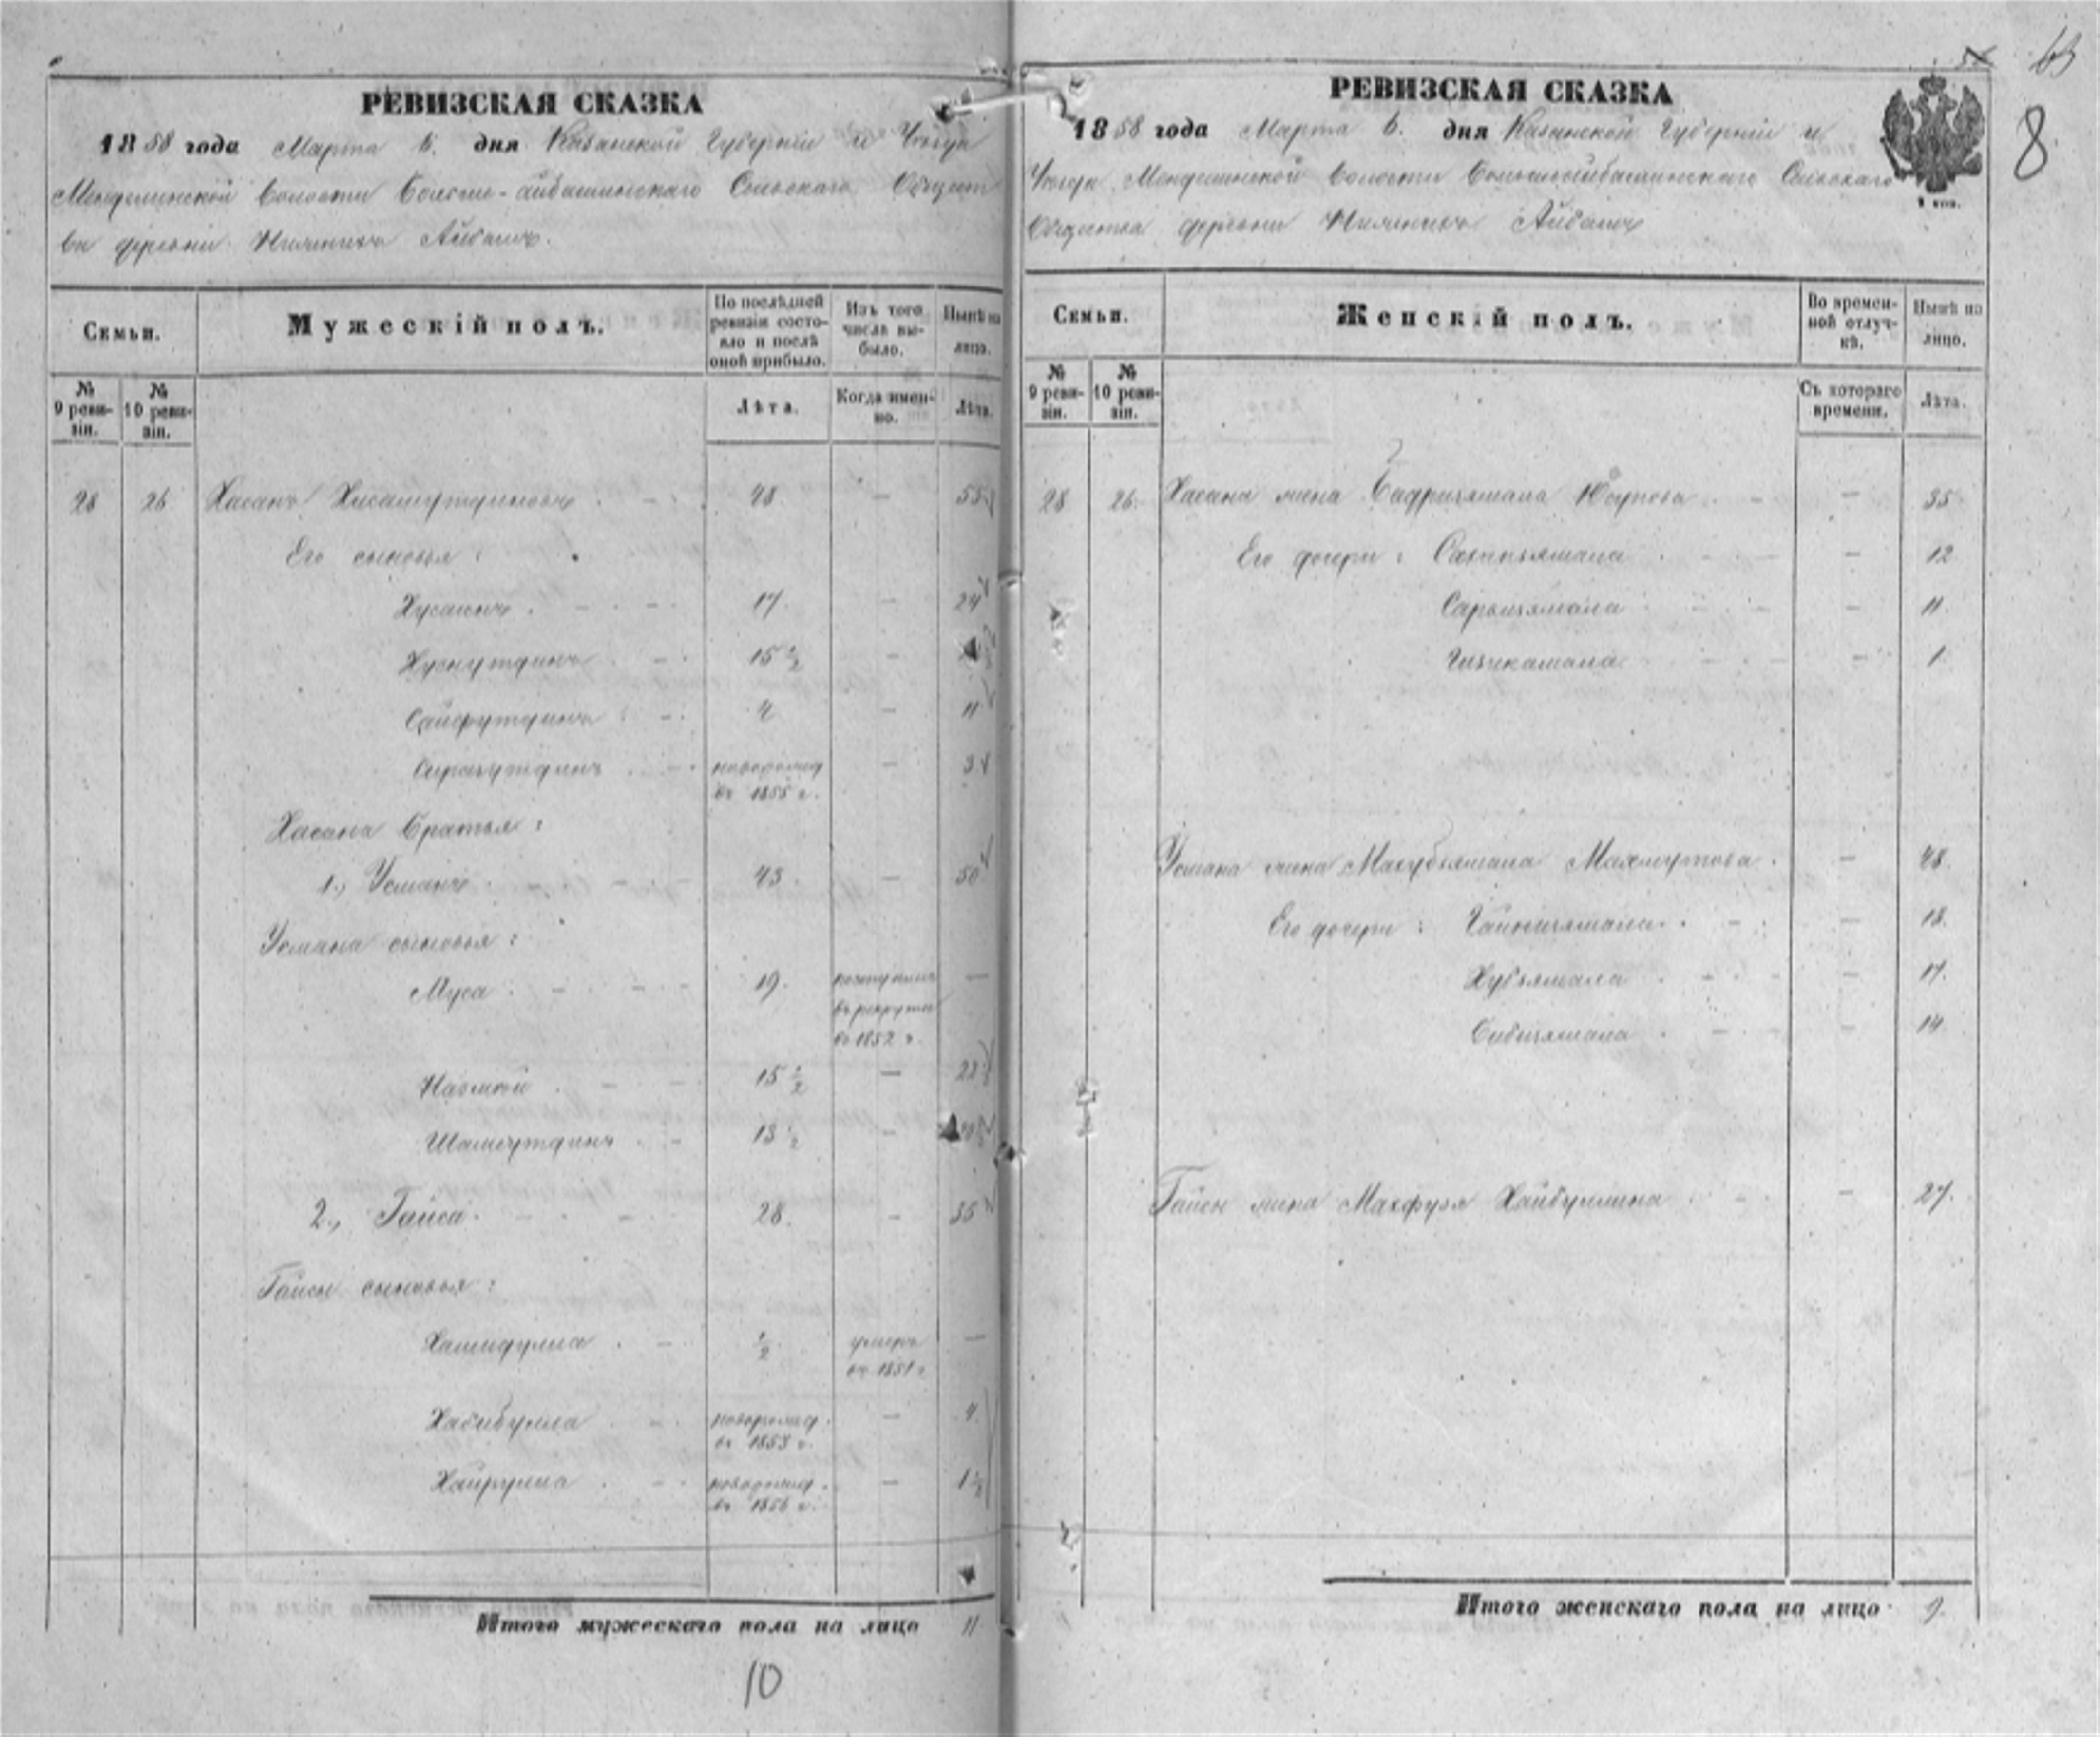 РЕВИЗСКАЯ СКАЗКА
1858 года Марта 6. дня Казанской Губерніи и Уѣзда
Менделинской волости Больше-айбашинскаго Сельскаго Общест
ва деревни Нижнихъ Айбашъ.
Семьи.
Мужескій полъ.
По послѣдней ревизіи состояло и послѣ оной прибыло.
Изъ того числа выбыло.
Нынѣ на лицо.
№ 9 ревизіи.
№ 10 ревизіи.
Лѣта.
Когда именно.
Лѣта.
28 26 Хасанъ Хисамутдиновъ 48 — 55
Его сыновья:
Хусаинъ 17 — 24
Хуснутдинъ 15 ½ —
Сайфутдинъ 4 — 11
Сиразутдинъ новорожд — 3
въ 1855 г.
Хасана братья:
1., Усманъ 43 — 50
Усмана сыновья:
Муса 19. поступилъ —
въ рекруты
въ 1852 г.
15 ½ — 22 ½
Шамсутдинъ 13 ½ —
2., Гайса 28. — 35
Гайсы сыновья:
Хамидулла ½ умеръ —
въ 1851 г
Хабибулла новорожд. — 4
въ 1853 г.
Хайрулла новорожд. — 1 ½
въ 1856 г.
Итого мужескаго пола на лицо 11
10
РЕВИЗСКАЯ СКАЗКА
1858 года Марта 6. дня Казанской Губерніи и
Уѣзда Менделинской волости Большеайбашинскаго Сельскаго
Общества деревни Нижнихъ Айбашъ
8
1 коп.
Семьи.
Женскій полъ.
Во временной отлучкѣ.
Нынѣ на лицо.
№ 9 ревизіи.
№ 10 ревизіи.
Съ котораго времени.
Лѣта.
28 26. Хасана жена Бадризямала Юсупова — 35
Его дочери: Сахипзямала — 12
Сарвизямала — 11.
— 1
Усмана жена Махубзямала Махмутова. — 48.
Его дочери: Гайнизямала — 18.
Хубзямала — 17.
Бибизямала — 14
Гайсы жена Махфузя Хайбуллина — 27.
Итого женскаго пола на лицо 9